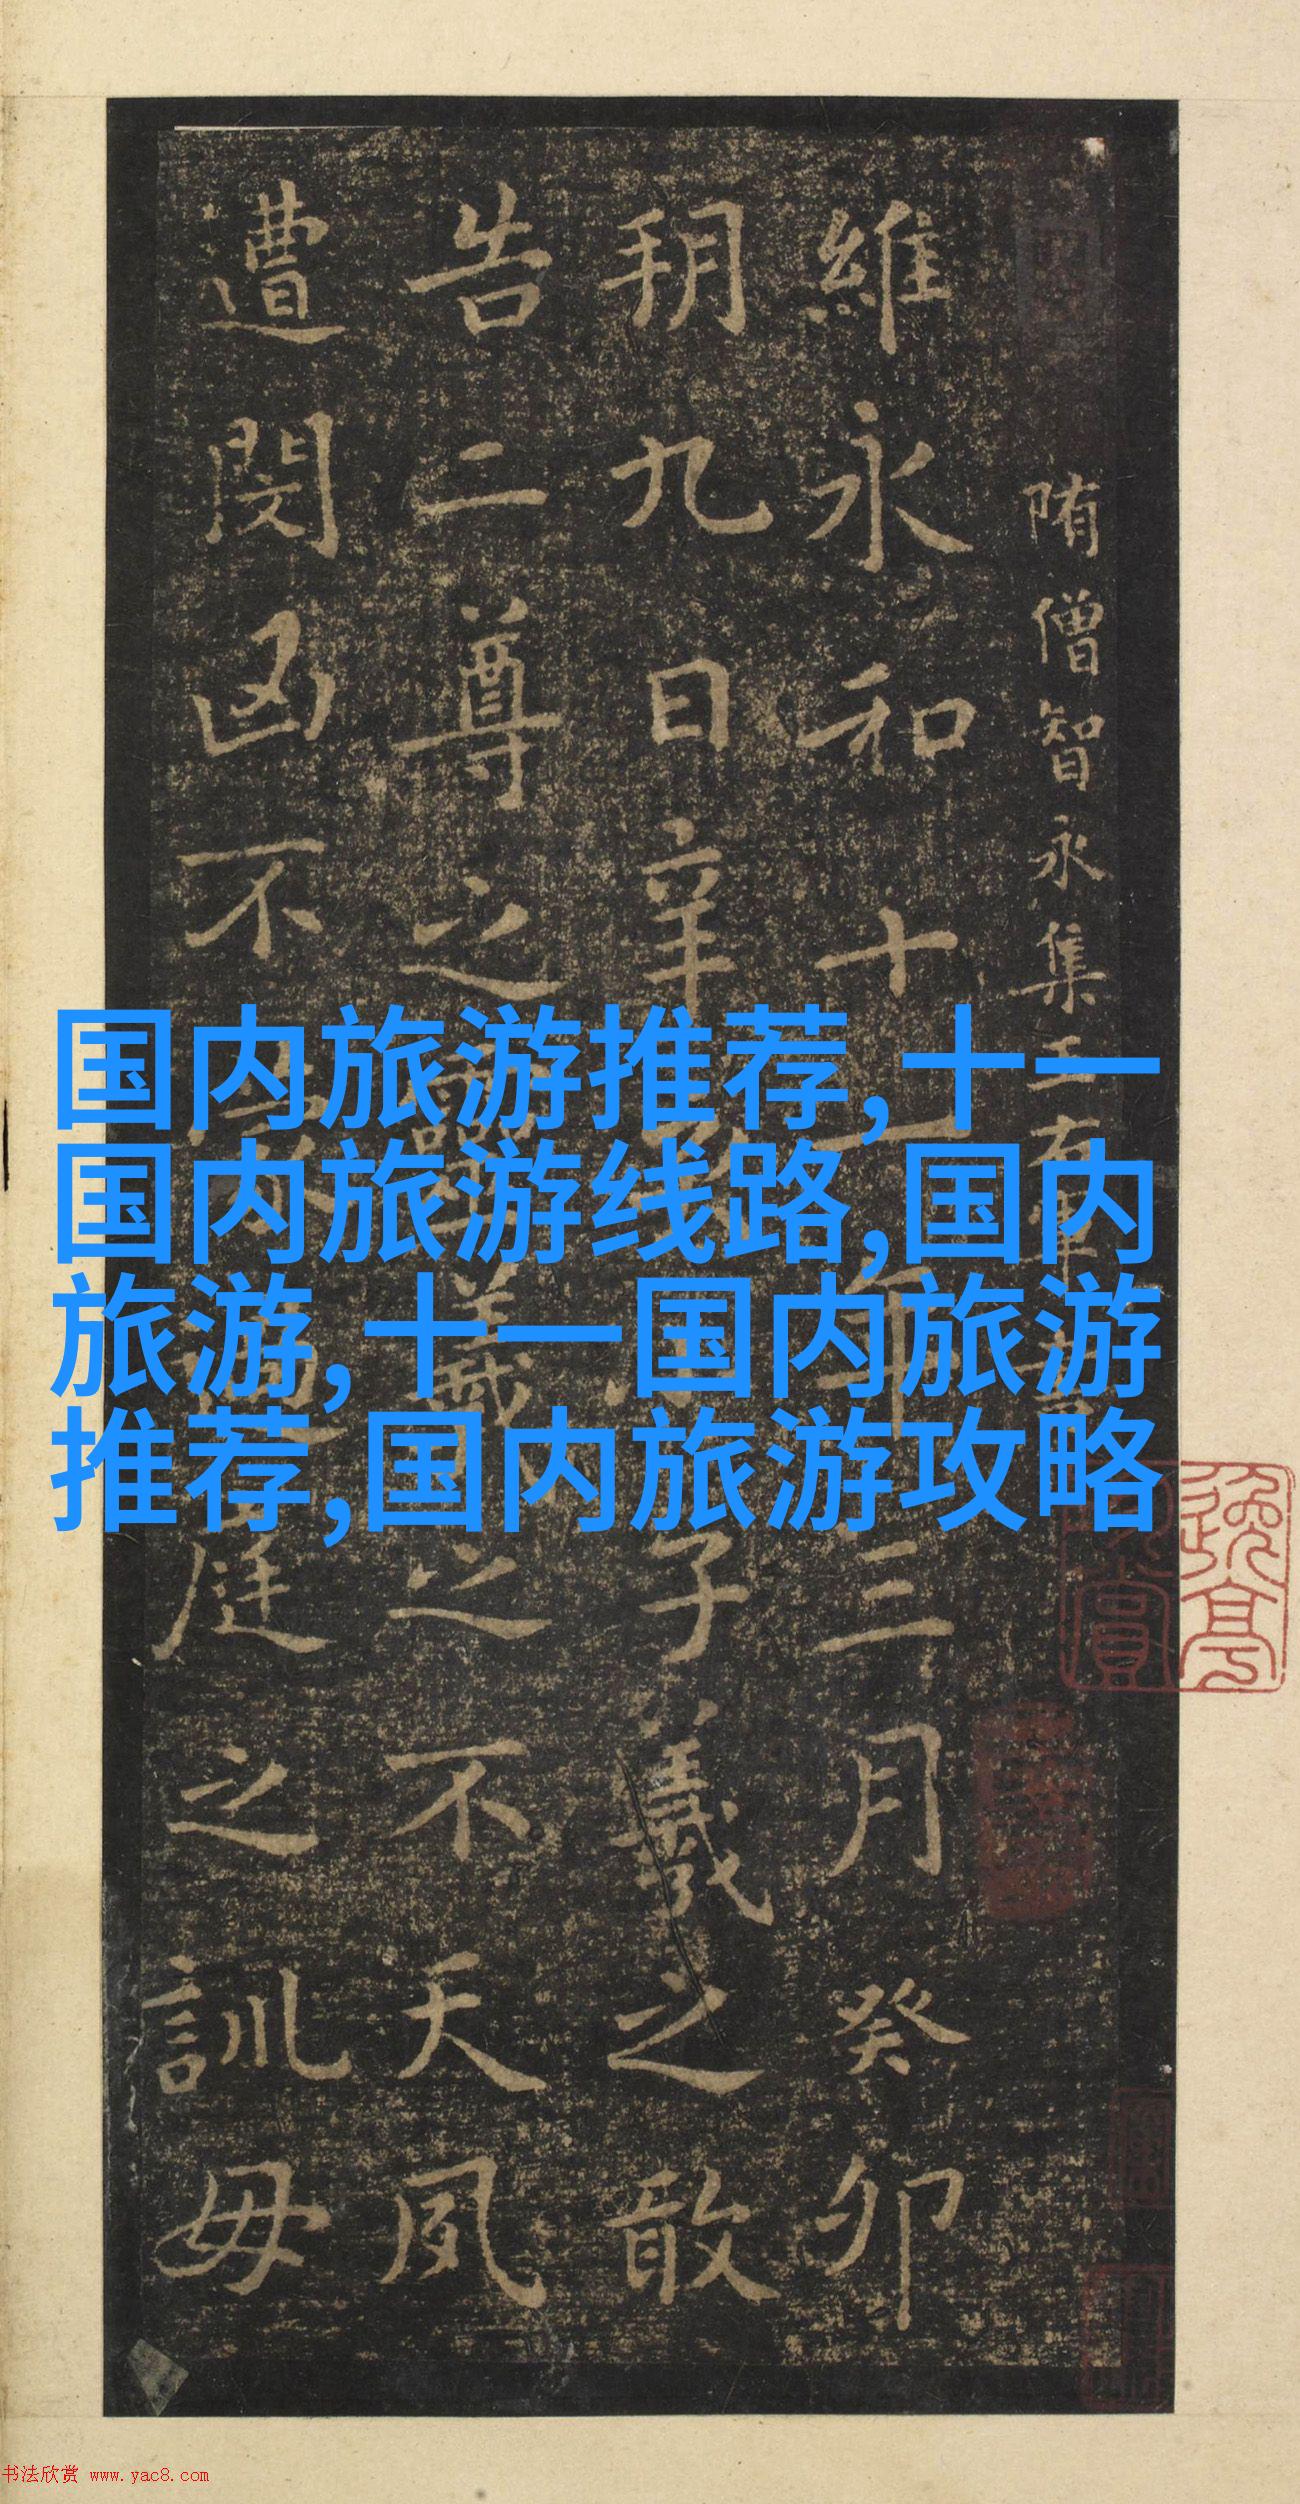 隋僧智永集王右軍書
維永和十一年三月癸卯
朔九日辛亥小子羲之敢
告二尊之靈羲之不天夙
遭閔凶不蒙過庭之訓毋
国内旅游推荐,十一
国内旅游线路,国内
旅游,十一国内旅游
推荐,国内旅游攻略
书法欣赏 www.yac8.com